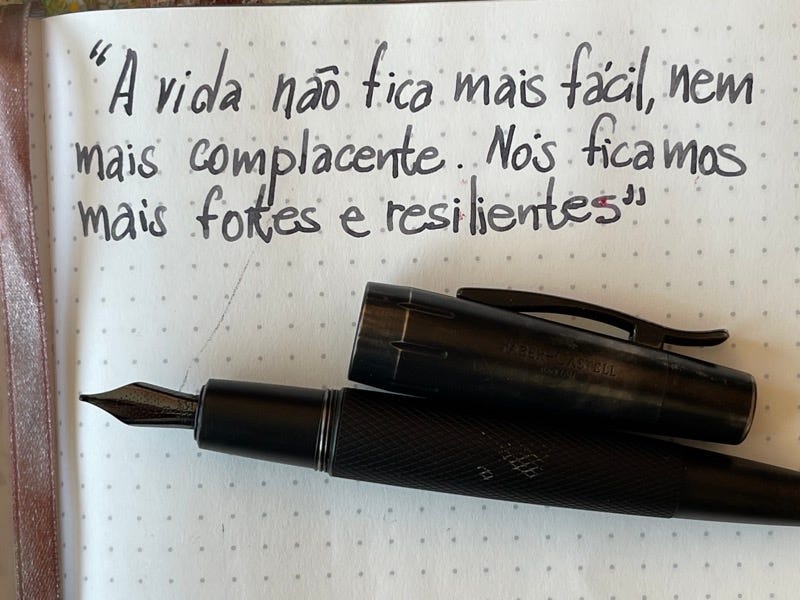 “A vida não fica mais fácil, nem
mais complacente. Nós ficamos
mais fortes e resilientes”
FABER-CASTELL